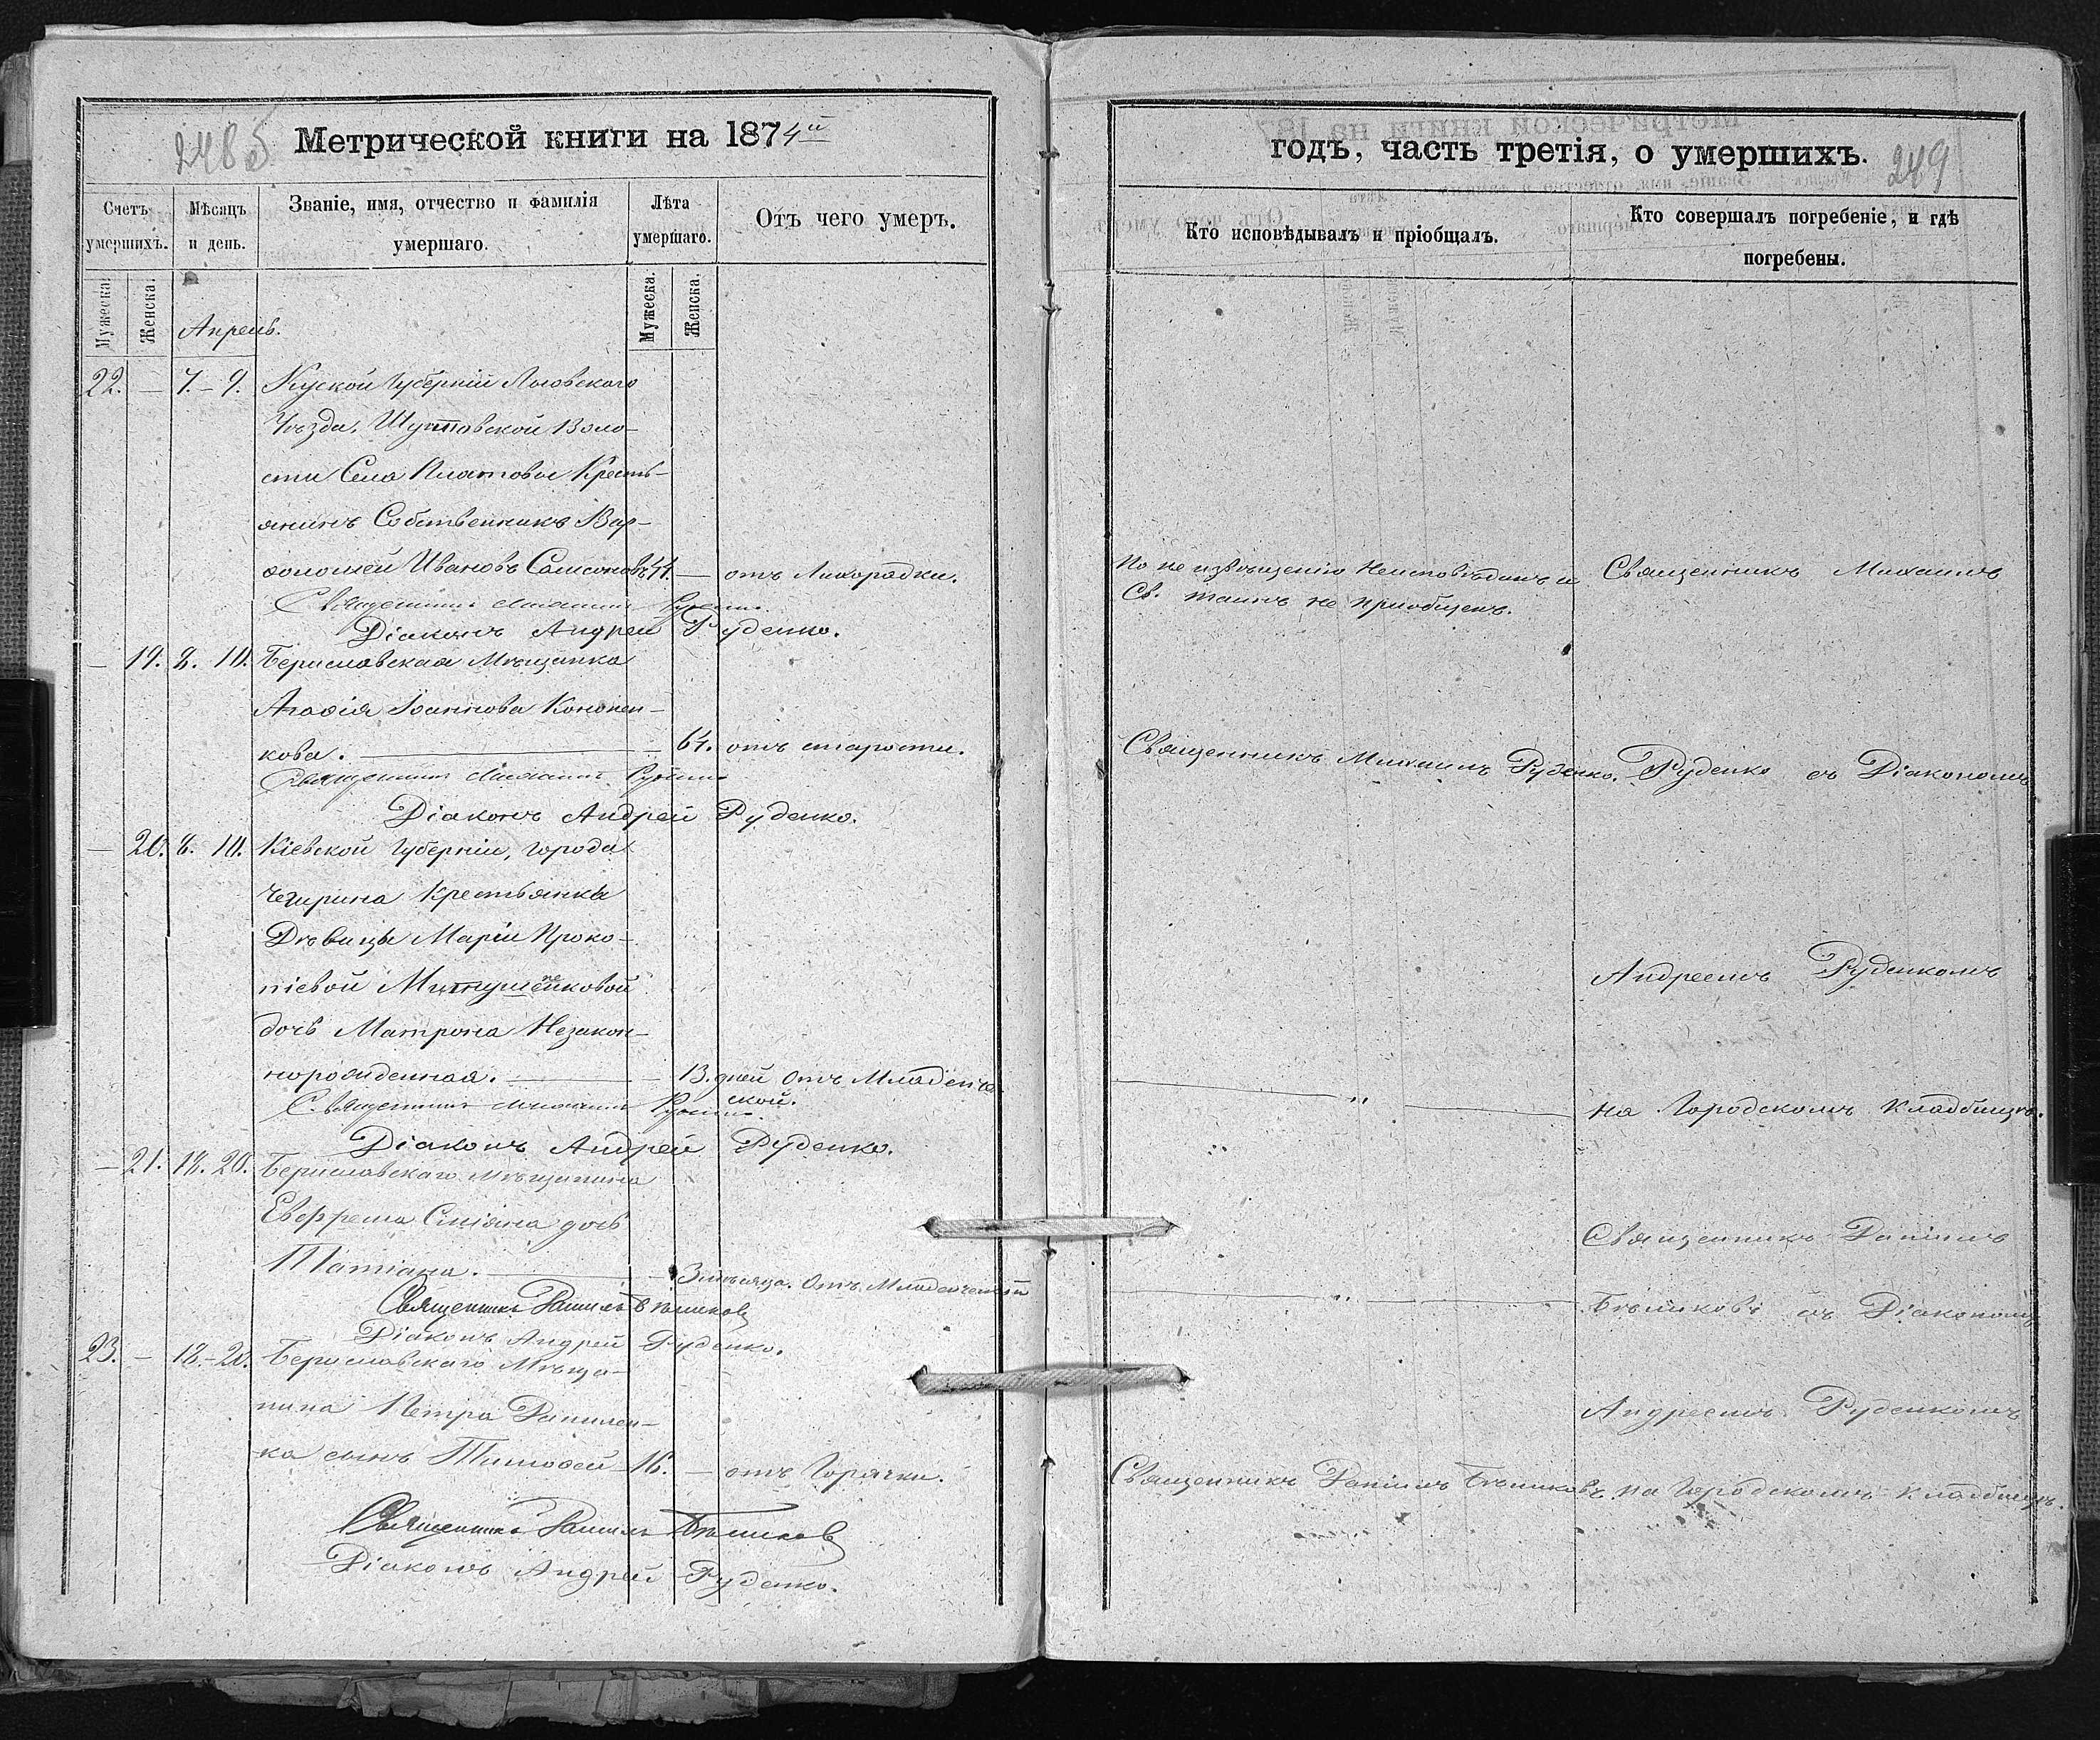 2485
Метрической книги на 1874й
Счетъ умершихъ.
Мѣсяцъ и день.
Званіе, имя, отчество и фамилія умершаго.
Лѣта умершаго.
Отъ чего умеръ.
Мужеска.
Женска.
Апрель.
Мужеска.
Женска.
22. — 7. — 9. Курской Губерніи Льговскаго
Уѣзда, Воло-
сти Села Платовы Кресть-
янинъ Собственникъ Вар-
ѳоломей Ивановъ Самсоновъ 44. — отъ Лихорадки.
Священникъ Михаилъ Руденко.
Діаконъ Андрей Руденко.
— 19. 8. 10. Бериславская Мѣщанка
Агаѳія Іоаннова Кононен-
кова. — 64. отъ старости.
Священникъ Михаилъ Руденко
Діаконъ Андрей Руденко.
— 20. 8. 10. Кіевской Губерніи, Города
Чегирина Крестьянки
Дѣвицы Маріи Проко-
піевой
дочь Матрона Незакон-
норожденная. — 13. дней отъ Младенче-
ской.
Священникъ Михаилъ Руденко.
Діаконъ Андрей Руденко.
— 21. 18. 20. Бериславскаго Мѣщанина
Евфрема дочь
Татіана. — 3 мѣсяца. Отъ Младенческой
Священникъ Даніилъ Бѣликовъ
Діаконъ Андрей Руденко.
23. — 18. — 20. Бериславскаго Мѣща-
нина Петра Данилен-
ка сынъ Тимоѳей 16. — отъ Горячки.
Священникъ Даніилъ Бѣликовъ
Діаконъ Андрей Руденко.
годъ, часть третія, о умершихъ.
249
Кто исповѣдывалъ и пріобщалъ.
Кто совершалъ погребеніе, и гдѣ погребены.
По не извѣщенію Неисповѣданъ и
Св. таинъ не пріобщенъ.
Священникъ Михаилъ
Священникъ Михаилъ Руденко.
Руденко съ Діакономъ
Андреемъ Руденкомъ
— " —
на Городскомъ Кладбищѣ.
Священникъ Даніилъ
— " —
Бѣликовъ съ Діакономъ
Андреемъ Руденкомъ
Священникъ Даніилъ Бѣликовъ
на Городскомъ кладбищѣ.